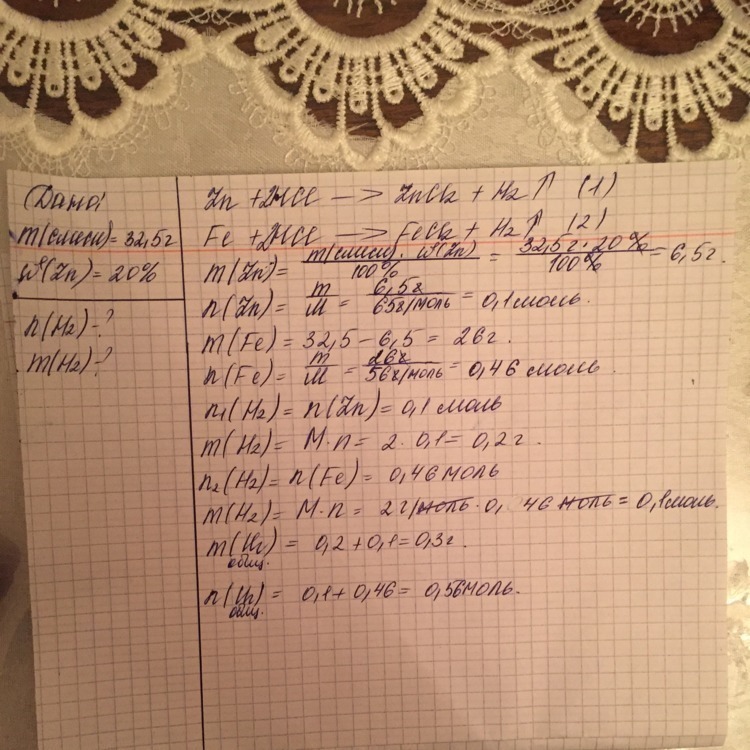 Дано:
m(смеси) = 32,5г
ω(Zn) = 20%
n(H₂) - ?
m(H₂) - ?
Zn + 2HCl —> ZnCl₂ + H₂↑ (1)
Fe + 2HCl —> FeCl₂ + H₂↑ (2)
m(Zn) = m(смеси) · ω(Zn) / 100% = 32,5г · 20% / 100% = 6,5г.
n(Zn) = m / M = 6,5г / 65г/моль = 0,1 моль.
m(Fe) = 32,5 - 6,5 = 26г.
n(Fe) = m / M = 26г / 56г/моль = 0,46 моль.
n₁(H₂) = n(Zn) = 0,1 моль
m(H₂) = M·n = 2 · 0,1 = 0,2г.
n₂(H₂) = n(Fe) = 0,46 моль
m(H₂) = M·n = 2г/моль · 0,46 моль = 0,1моль.
m(H₂) общ. = 0,2 + 0,1 = 0,3г.
n(H₂) общ. = 0,1 + 0,46 = 0,56моль.